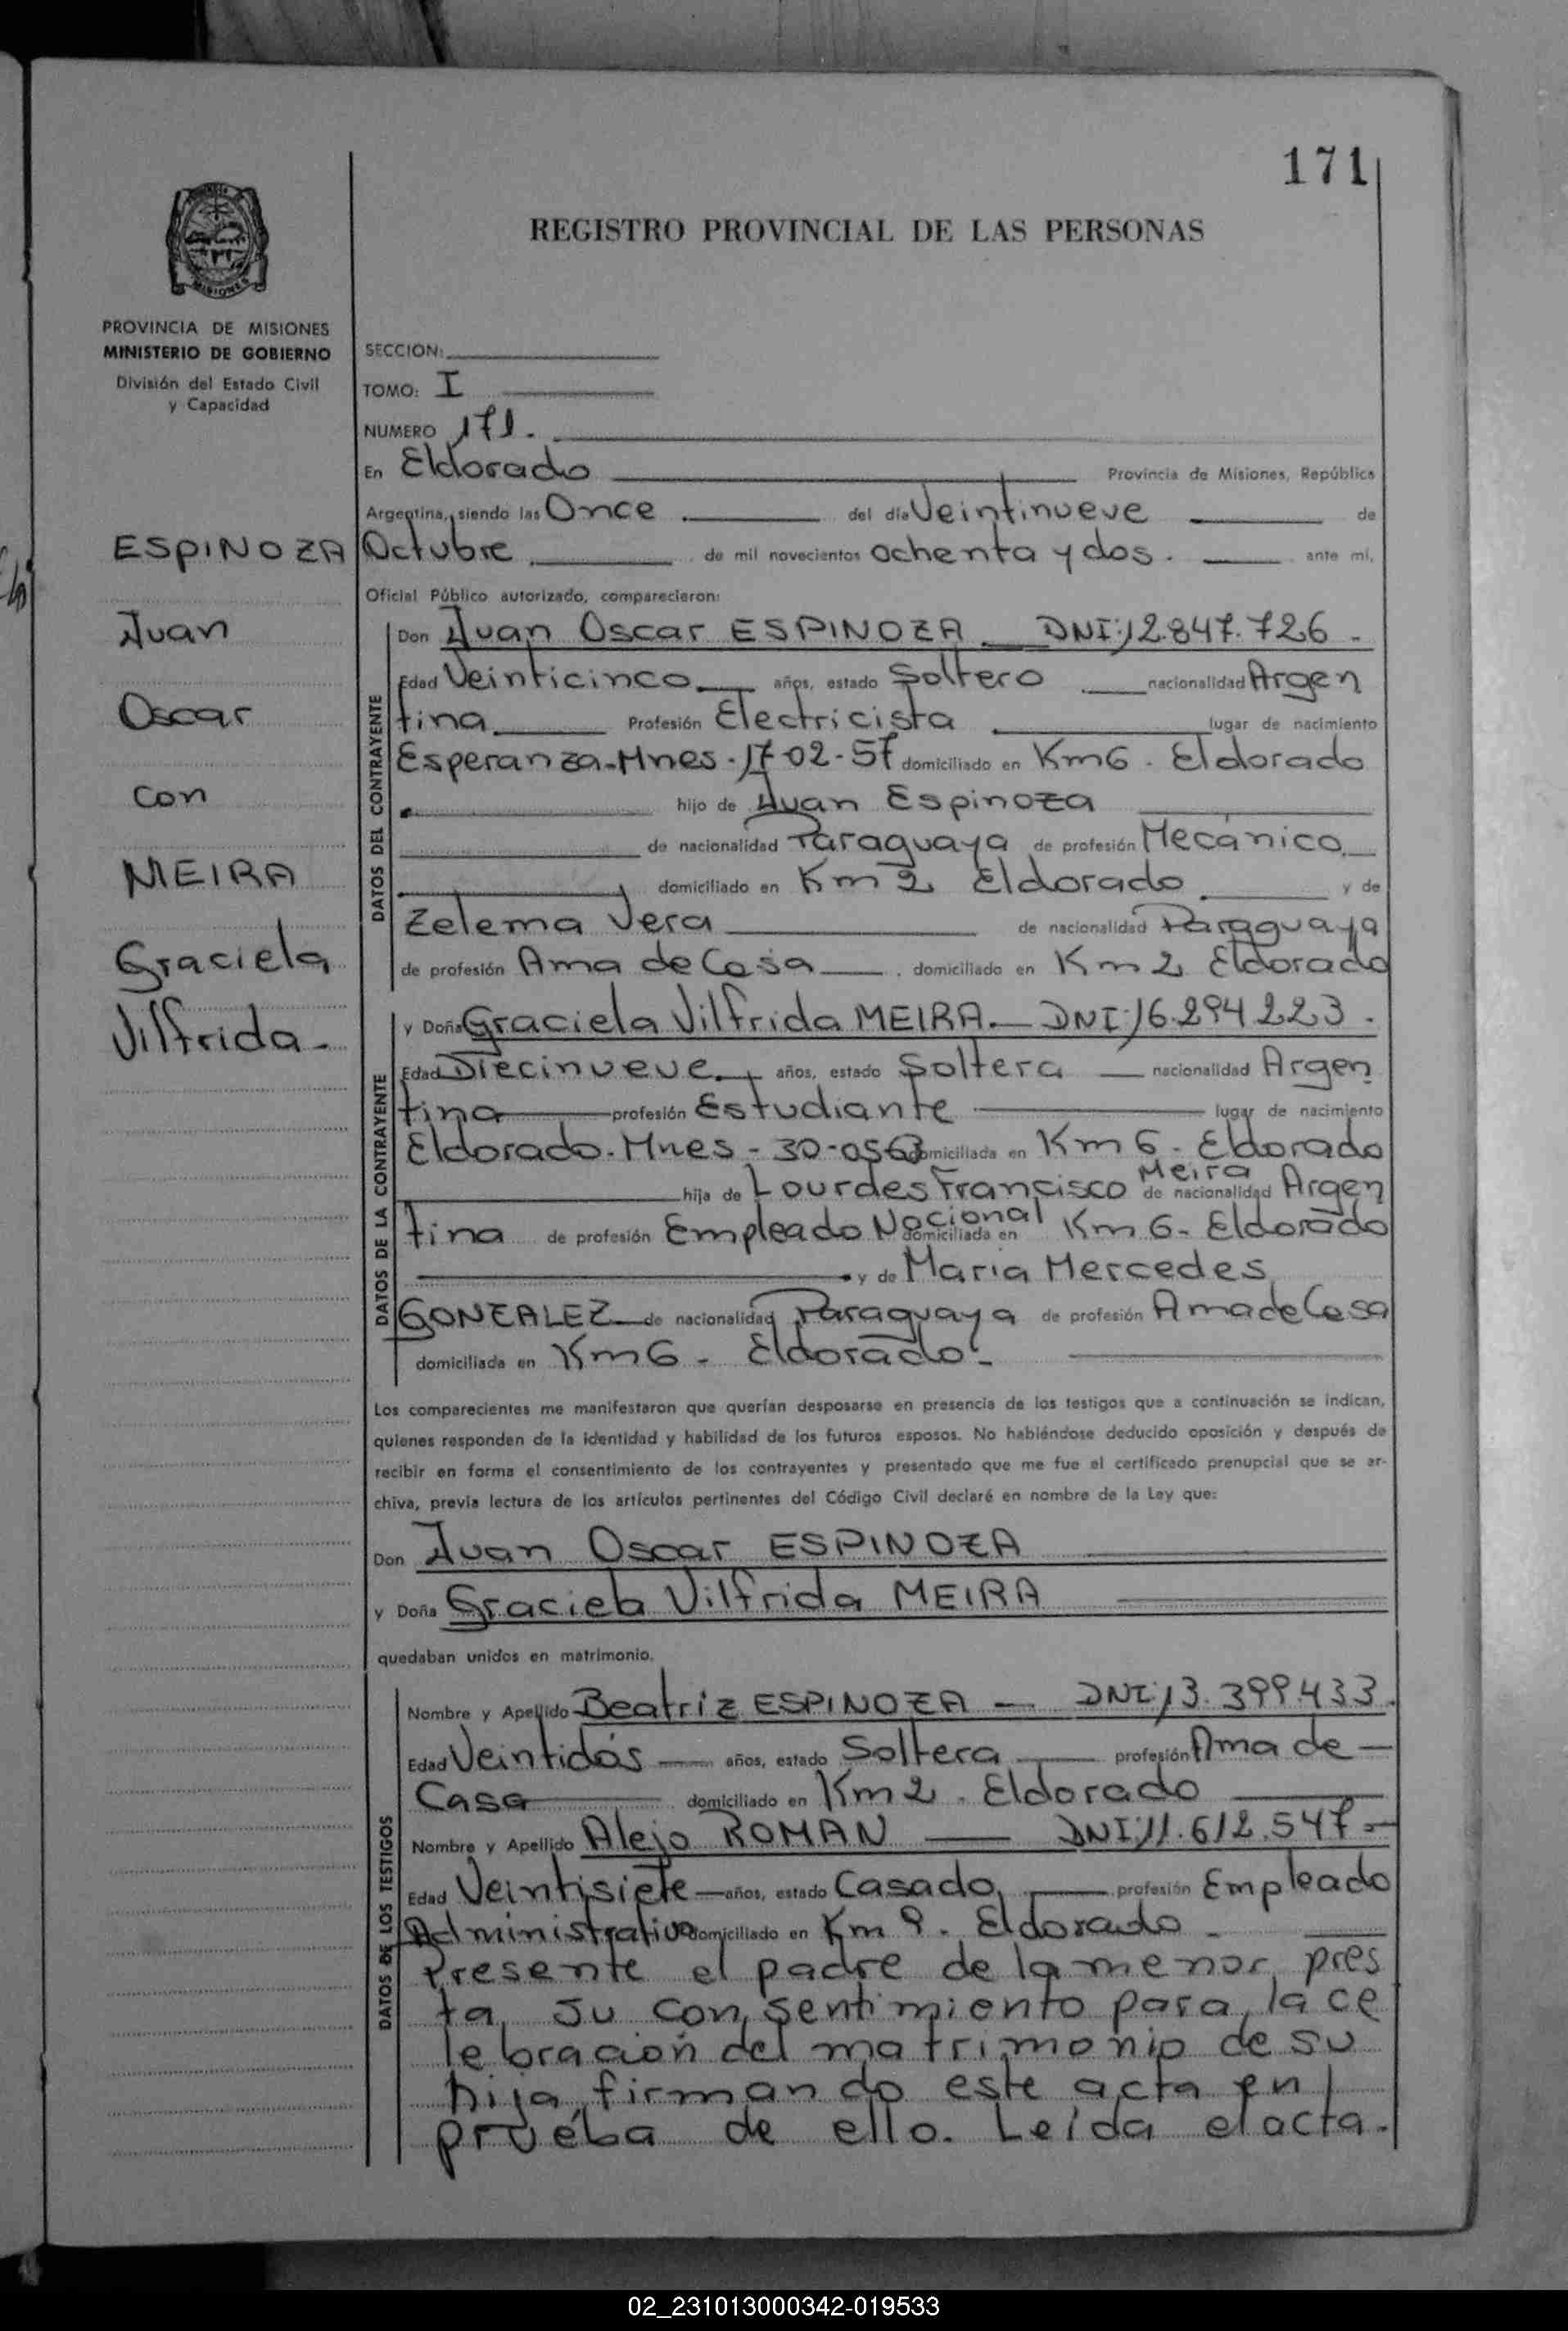 171
REGISTRO PROVINCIAL DE LAS PERSONAS
MISIONES
PROVINCIA DE MISIONES
MINISTERIO DE GOBIERNO
División del Estado Civil
y Capacidad
ESPINOZA
Juan
Oscar
con
MEIRA
Graciela
Vilfrida.-
SECCION:
TOMO: I
NUMERO 171.
En Eldorado Provincia de Misiones, República
Argentina, siendo las Once del día Veintinueve de
Octubre de mil novecientos ochenta y dos. ante mí,
Oficial Público autorizado, comparecieron:
DATOS DEL CONTRAYENTE
Don Juan Oscar ESPINOZA DNI:12.847.726.
Edad Veinticinco años, estado Soltero nacionalidad Argen
tina Profesión Electricista lugar de nacimiento
Esperanza-Mnes-17-02-57 domiciliado en Km6. Eldorado
hijo de Juan Espinoza
de nacionalidad Paraguaya de profesión Mecánico
domiciliado en Km 2 Eldorado y de
Zelema Vera de nacionalidad Paraguaya
de profesión Ama de Casa domiciliado en Km 2 Eldorado
DATOS DE LA CONTRAYENTE
y Doña Graciela Vilfrida MEIRA. DNI:16.294.223.
Edad Diecinueve años, estado Soltera nacionalidad Argen
tina profesión Estudiante lugar de nacimiento
Eldorado-Mnes-30-05-63 domiciliada en Km 6. Eldorado
hija de Lourdes Francisco Meira de nacionalidad Argen
tina de profesión Empleado Nacional domiciliada en Km 6- Eldorado
y de Maria Mercedes
GONZALEZ de nacionalidad Paraguaya de profesión Ama de Casa
domiciliada en Km 6 - Eldorado.-
Los comparecientes me manifestaron que querían desposarse en presencia de los testigos que a continuación se indican,
quienes responden de la identidad y habilidad de los futuros esposos. No habiéndose deducido oposición y después de
recibir en forma el consentimiento de los contrayentes y presentado que me fue el certificado prenupcial que se ar-
chiva, previa lectura de los artículos pertinentes del Código Civil declaré en nombre de la Ley que:
Don Juan Oscar ESPINOZA
y Doña Graciela Vilfrida MEIRA
quedaban unidos en matrimonio.
DATOS DE LOS TESTIGOS
Nombre y Apellido Beatriz ESPINOZA - DNI:13.399.433.
Edad Veintidós años, estado Soltera profesión Ama de
Casa domiciliado en Km 2. Eldorado
Nombre y Apellido Alejo ROMAN DNI:11.612.547.-
Edad Veintisiete años, estado Casado profesión Empleado
Administrativo domiciliado en Km 9. Eldorado.
Presente el padre de la menor, pres
ta su consentimiento para la ce
lebración del matrimonio de su
hija, firmando este acta en
pruéba de ello. Leída el acta.
02_231013000342-019533